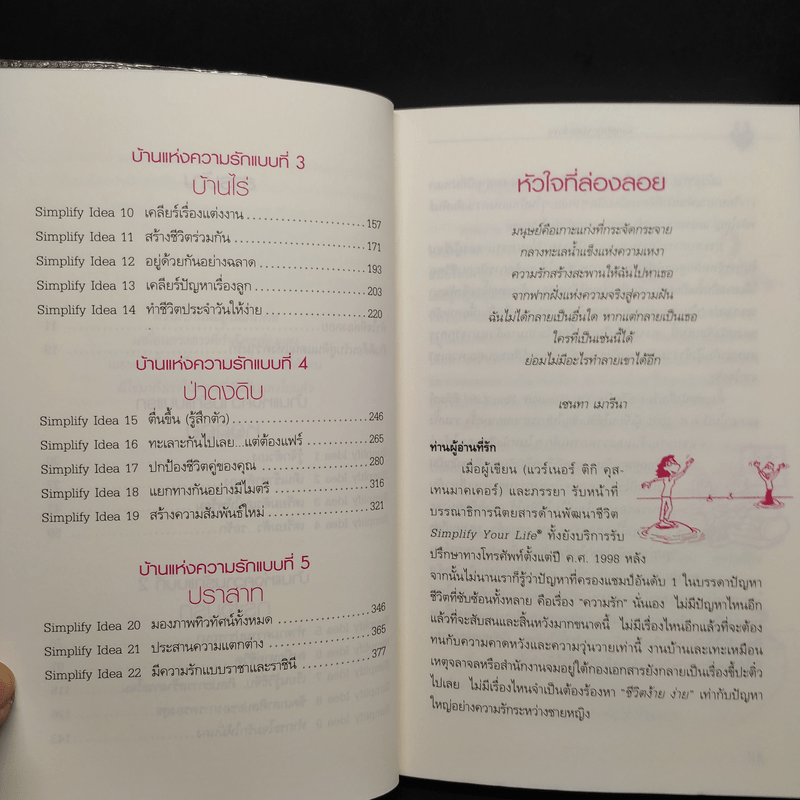 บ้านแห่งความรักแบบที่ 3
บ้านไร่
Simplify Idea 10 เคลียร์เรื่องแต่งงาน ........................ 157
Simplify Idea 11 สร้างชีวิตร่วมกัน ........................ 171
Simplify Idea 12 อยู่ด้วยกันอย่างฉลาด ........................ 193
Simplify Idea 13 เคลียร์ปัญหาเรื่องลูก ........................ 203
Simplify Idea 14 ทำชีวิตประจำวันให้ง่าย ........................ 220
บ้านแห่งความรักแบบที่ 4
ป่าดงดิบ
Simplify Idea 15 ตื่นขึ้น (รู้สึกตัว) ........................ 246
Simplify Idea 16 ทะเลาะกันไปเลย...แต่ต้องแฟร์ ........................ 265
Simplify Idea 17 ปกป้องชีวิตคู่ของคุณ ........................ 280
Simplify Idea 18 แยกทางกันอย่างมีไมตรี ........................ 316
Simplify Idea 19 สร้างความสัมพันธ์ใหม่ ........................ 321
บ้านแห่งความรักแบบที่ 5
ปราสาท
Simplify Idea 20 มองภาพทิวทัศน์ทั้งหมด ........................ 346
Simplify Idea 21 ประสานความแตกต่าง ........................ 365
Simplify Idea 22 มีความรักแบบราชาและราชินี ........................ 377
หัวใจที่ล่องลอย
มนุษย์คือเกาะแก่งที่กระจัดกระจาย
กลางทะเลน้ำแข็งแห่งความเหงา
ความรักสร้างสะพานให้ฉันไปหาเธอ
จากฟากฝั่งแห่งความจริงสู่ความฝัน
ฉันไม่ได้กลายเป็นอื่นใด หากแต่กลายเป็นเธอ
ใครที่เป็นเช่นนี้ได้
ย่อมไม่มีอะไรทำลายเขาได้อีก
เซนทา เมารีนา
ท่านผู้อ่านที่รัก
เมื่อผู้เขียน (แวร์เนอร์ ติกิ คุส-
เทนมาคเคอร์) และภรรยา รับหน้าที่
บรรณาธิการนิตยสารด้านพัฒนาชีวิต
Simplify Your Life® ทั้งยังบริการรับ
ปรึกษาทางโทรศัพท์ตั้งแต่ปี ค.ศ. 1998 หลัง
จากนั้นไม่นานเราก็รู้ว่าปัญหาที่ครองแชมป์อันดับ 1 ในบรรดาปัญหา
ชีวิตที่ซับซ้อนทั้งหลาย คือเรื่อง "ความรัก" นั่นเอง ไม่มีปัญหาไหนอีก
แล้วที่จะสับสนและสิ้นหวังมากขนาดนี้ ไม่มีเรื่องไหนอีกแล้วที่จะต้อง
ทนกับความคาดหวังและความวุ่นวายเท่านี้ งานบ้านเละเทะเหมือน
เหตุจลาจลหรือสำนักงานจมอยู่ใต้กองเอกสารยังกลายเป็นเรื่องขี้ปะติ๋ว
ไปเลย ไม่มีเรื่องไหนจำเป็นต้องร้องหา "ชีวิตง้าย ง่าย" เท่ากับปัญหา
ใหญ่อย่างความรักระหว่างชายหญิง